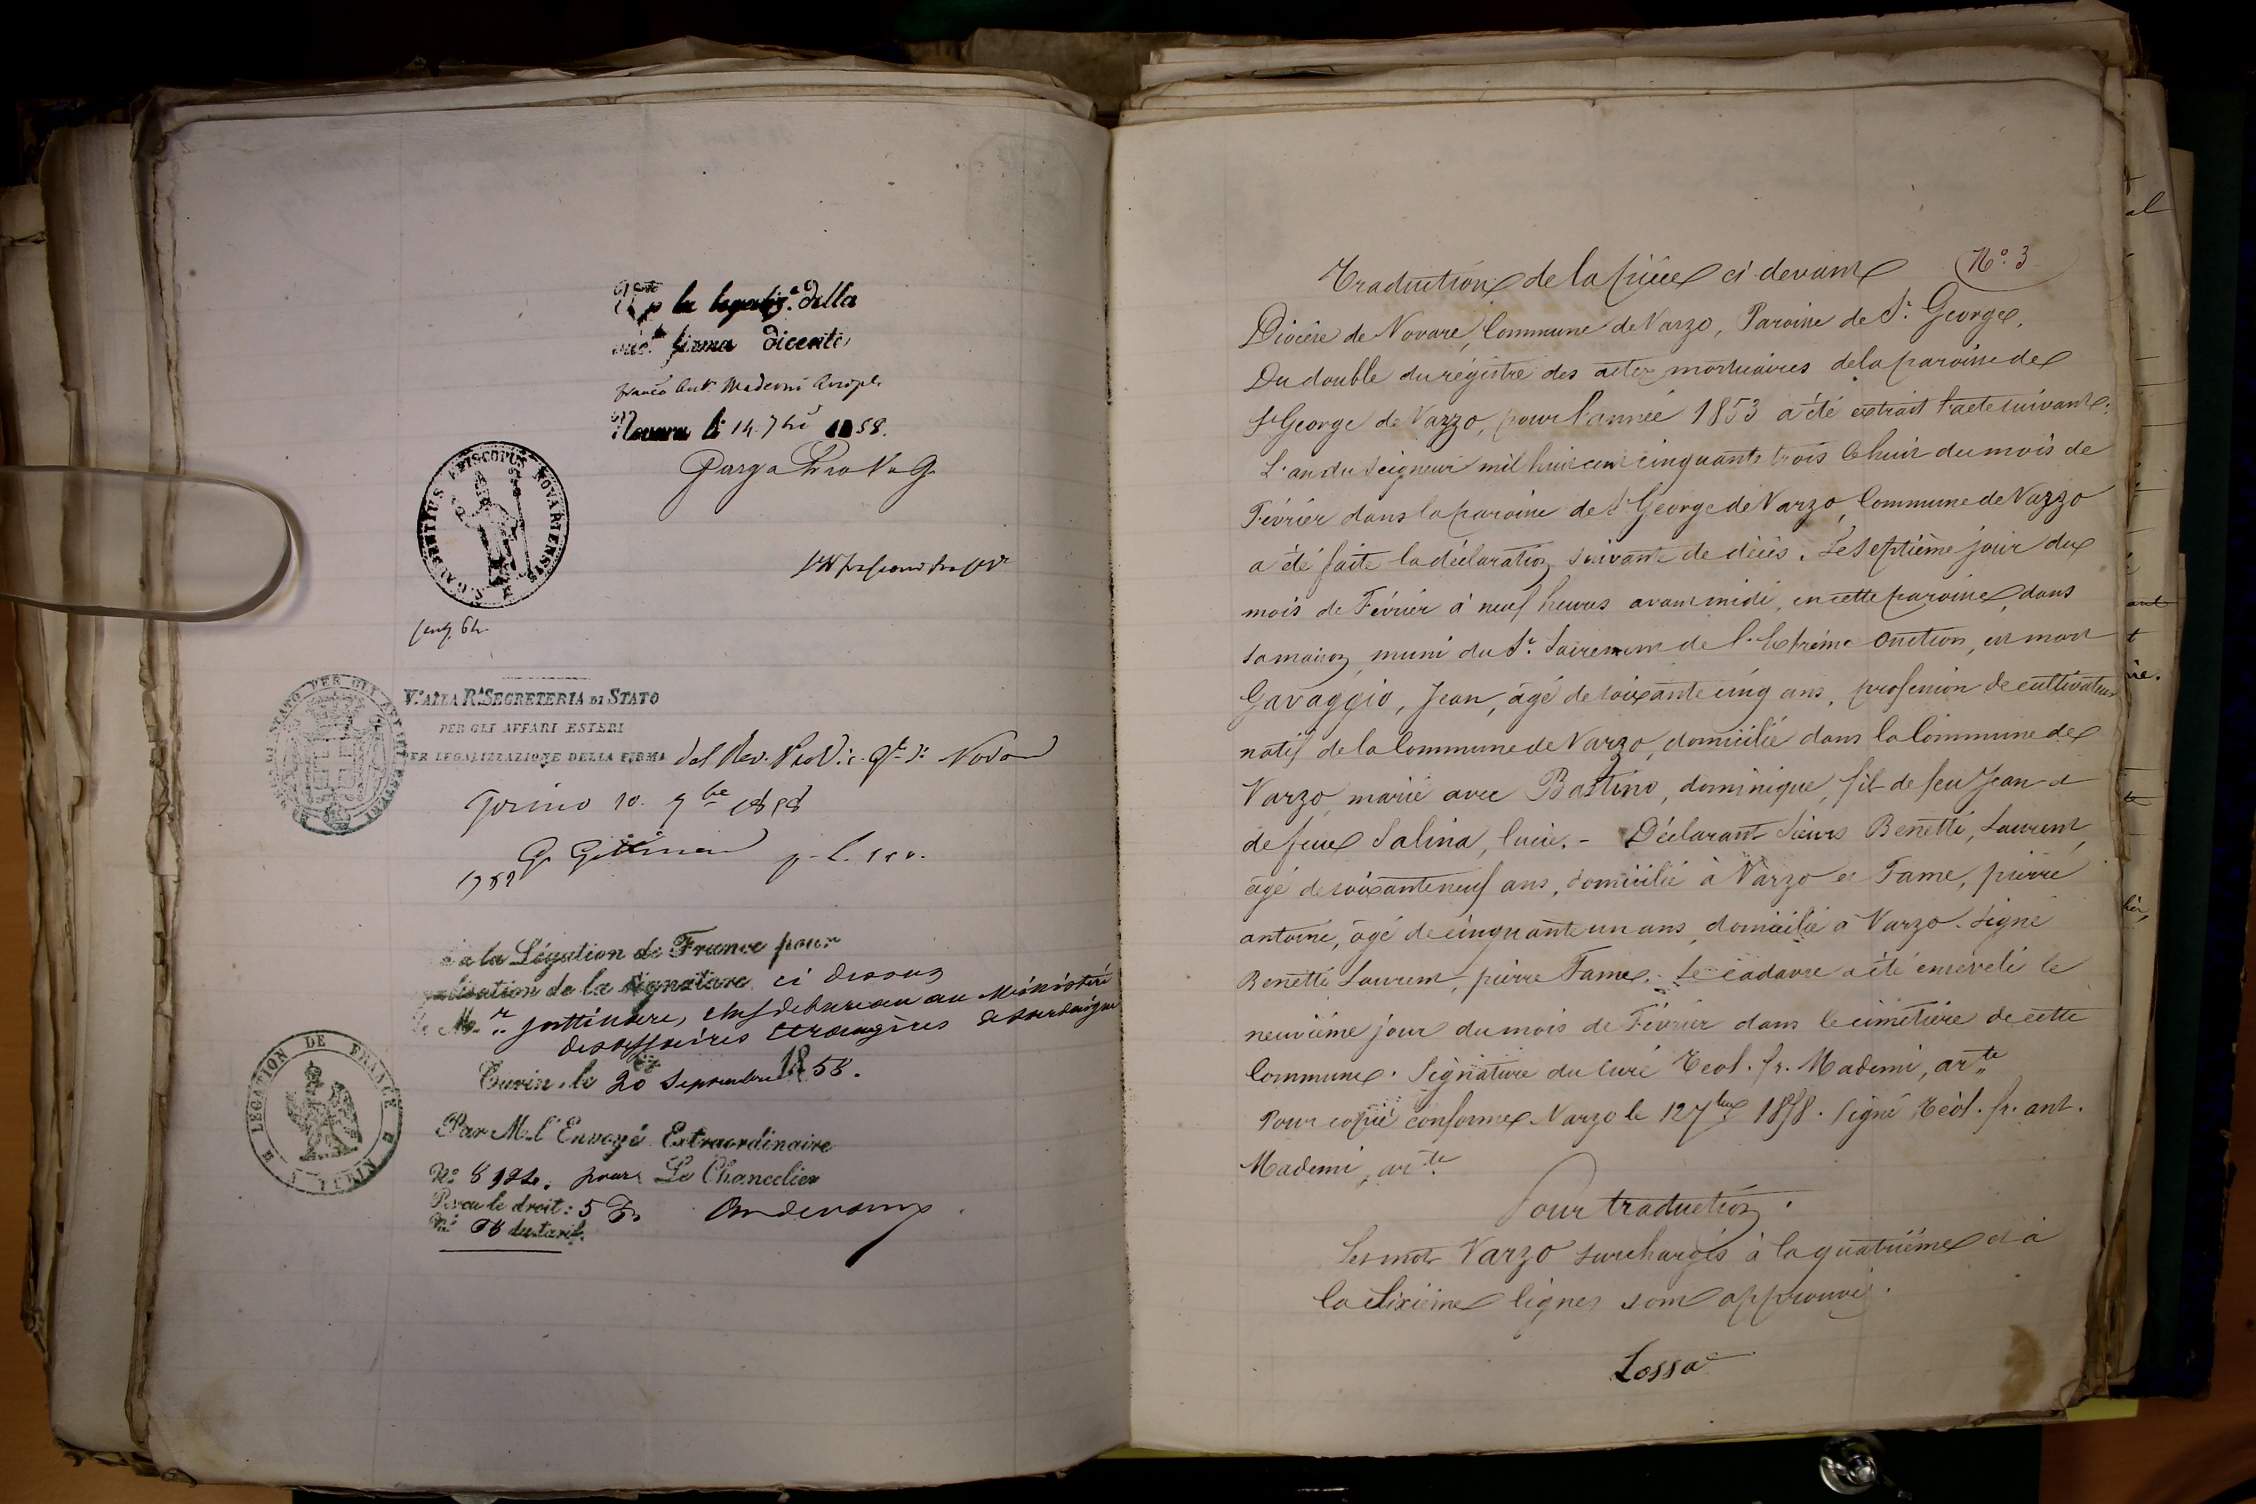 la legaliz.e della
firma
Novara li 14. 7bre 1858.
GAUDENTIUS EPISCOPUS NOVARIENSIS
V.o ALLA R.a SEGRETERIA DI STATO
PER GLI AFFARI ESTERI
PER LEGALIZZAZIONE DELLA FIRMA del Rev.
Torino 20. 7bre 1858
à la Légation de France pour
légalisation de la Signature ci dessus
de Mr. chef de bureau au Ministère
des affaires Etrangères de Sardaigne
Turin, le 20 Septembre 1858.
LEGATION DE FRANCE A TURIN
Par M. l'Envoyé Extraordinaire
No pour Le Chancelier
Percu le droit: 5 F.
No du tarif.
Traduction de la pièce ci devant No. 3
Diocèse de Novare, Commune de Varzo, Paroisse de St. George.
Du double du régistre des actes mortuaires de la paroisse de
St George de Varzo, pour l'année 1853 a été extrait l'acte suivant:
L'an du Seigneur mil huit cent cinquante trois le huit du mois de
Février dans la paroisse de St George de Varzo, Commune de Varzo
a été faite la déclaration suivante de décès. Le Septième jour du
mois de Février à neuf heures avant midi, en cette paroisse, dans
sa maison, muni du St. Sacrement de l'Extrême Onction, est mort
Gavaggio, Jean, âgé de soixante cinq ans, profession de cultivateur
natif de la Commune de Varzo, domicilié dans la Commune de
Varzo, marié avec Bastino, dominique, fils de feu Jean et
de feue Salina, lucie. - Déclarant Sieurs Benetti, Laurent,
âgé de soixante neuf ans, domicilié à Varzo et Fame, pierre
antoine, âgé de cinquante un ans, domicilié à Varzo. Signé
Benetti Laurent, pierre Fame. Le cadavre a été enseveli le
neuvième jour du mois de Février dans le cimetière de cette
Commune. Signature du Curé Teol. fr. Maderni, arte
Pour copie conforme Varzo le 12 7bre 1858. Signé Teol. fr. ant.
Maderni, arte
Pour traduction.
Les mots Varzo surchargés à la quatrième et à
la Sixième lignes sont approuvés.
Lossa